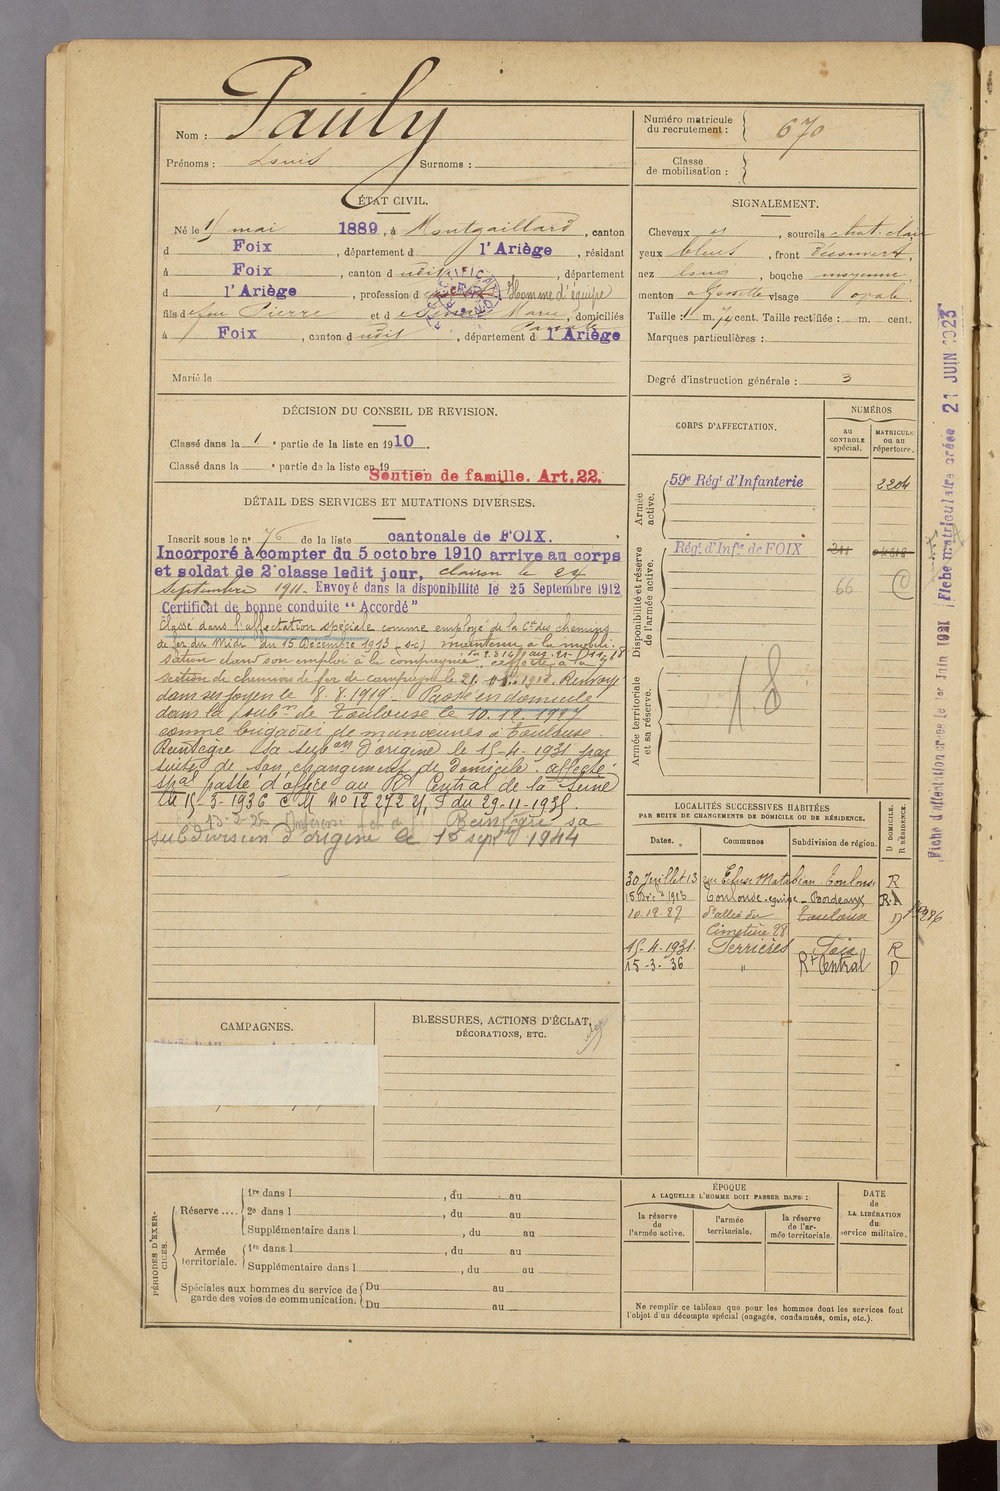 Nom : Pauly
Prénoms : Louis Surnoms :
Numéro matricule
du recrutement : 670
Classe
de mobilisation :
ÉTAT CIVIL.
Né le 15 mai 1889, à Montgaillard, canton
d Foix, département d l'Ariège, résidant
à Foix, canton d udit, département
d l'Ariège, profession d Homme d'équipe
RECTIFICATION
fils de feu Pierre et d Marie, domiciliés
à Foix, canton d udit, département d l'Ariège
Marié le
SIGNALEMENT.
Cheveux et, sourcils chat. clair
yeux bleus, front découvert,
nez long, bouche moyenne
menton à fossette visage ovale
Taille : 1 m. 74 cent. Taille rectifiée : m. cent.
Marques particulières :
Degré d'instruction générale : 3
DÉCISION DU CONSEIL DE REVISION.
Classé dans la 1e partie de la liste en 1910.
Classé dans la e partie de la liste en 19
Soutien de famille. Art. 22.
DÉTAIL DES SERVICES ET MUTATIONS DIVERSES.
Inscrit sous le n° 76 de la liste cantonale de FOIX.
Incorporé à compter du 5 octobre 1910 arrive au corps
et soldat de 2e classe ledit jour, clairon le 24
Septembre 1911. Envoyé dans la disponibilité le 25 Septembre 1912
Certificat de bonne conduite "Accordé"
Classé dans l'affectation spéciale comme employé de la Cie des chemins
de fer du Midi du 15 Décembre 1913 (s-c) maintenu à la mobili-
sation dans son emploi à la compagnie. affecté à la
section de chemins de fer de campagne le 21. 1918. Renvoyé
dans ses foyers le 8.8.1919. Passé en domicile
dans la subon de Toulouse le 10.12.1927
comme brigadier de manœuvres à Toulouse.
Réintègre sa subon d'origine le 15-4-1931 par
suite de son changement de domicile. affecté
spal passé d'office au Rt Central de la Seine
le 15-3-1936 C.M. No 12272 du 29-11-1935.
Réintègre sa
subdivision d'origine le 1er septbre 1944
CORPS D'AFFECTATION.
NUMÉROS
au
CONTROLE
spécial.
MATRICULE
ou au
répertoire.
Armée
active.
59e Régt d'Infanterie 2204
Disponibilité et réserve
de l'armée active.
Régt d'Infie de FOIX 211
66
Armée territoriale
et sa réserve.
LOCALITÉS SUCCESSIVES HABITÉES
PAR SUITE DE CHANGEMENTS DE DOMICILE OU DE RÉSIDENCE.
Dates. Communes Subdivision de région. D DOMICILE. R RÉSIDENCE.
30 Juillet 13 rue Ecluse Matabiau Toulouse R
15 Déc. 1913 Toulouse Bordeaux R.A
10.12.27 Toulouse D
Cimetière 28
15-4-1931 Ferrières Foix R
15-3-36 " Rt Central D
CAMPAGNES.
BLESSURES, ACTIONS D'ÉCLAT,
DÉCORATIONS, ETC.
PÉRIODES D'EXER-
CICES.
Réserve .... 1re dans l , du au
2e dans l , du au
Supplémentaire dans l , du au
Armée
territoriale. 1re dans l , du au
Supplémentaire dans l , du au
Spéciales aux hommes du service de
garde des voies de communication. Du au
Du au
ÉPOQUE
A LAQUELLE L'HOMME DOIT PASSER DANS :
la réserve
de
l'armée active.
l'armée
territoriale.
la réserve
de l'ar-
mée territoriale.
DATE
de
LA LIBÉRATION
du
service militaire.
Ne remplir ce tableau que pour les hommes dont les services font
l'objet d'un décompte spécial (engagés, condamnés, omis, etc.).
Fiche d'affectation créée le 1er Juin 1921
Fiche matriculaire créée 21 JUIN 1923